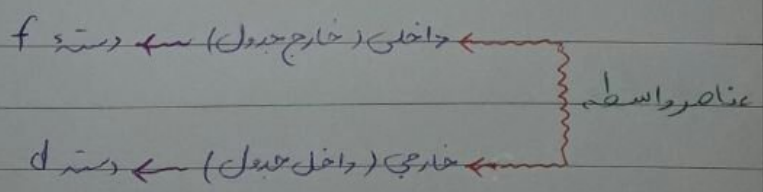 عناصر واسطه
داخلی (خارج جدول) ← دسته f
خارجی (داخل جدول) ← دسته d